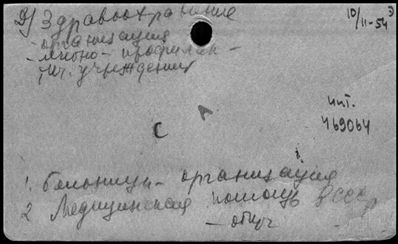 Здравоохранение
10/11-54
- организация
- профилак-
тич. учреждения
С
А
инт.
469064
1. Больницы - организация
2 Медицинская помощь в СССР
- общ